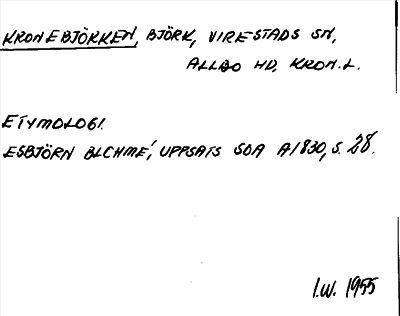 KRONEBJÖRKEN, BJÖRK, VIRESTADS SN,
ALLBO HD, KRON.L.
ETYMOLOGI.
ESBJÖRN BLCHMÉ, UPPSATS SOA A1830, S. 28.
I.W. 1955